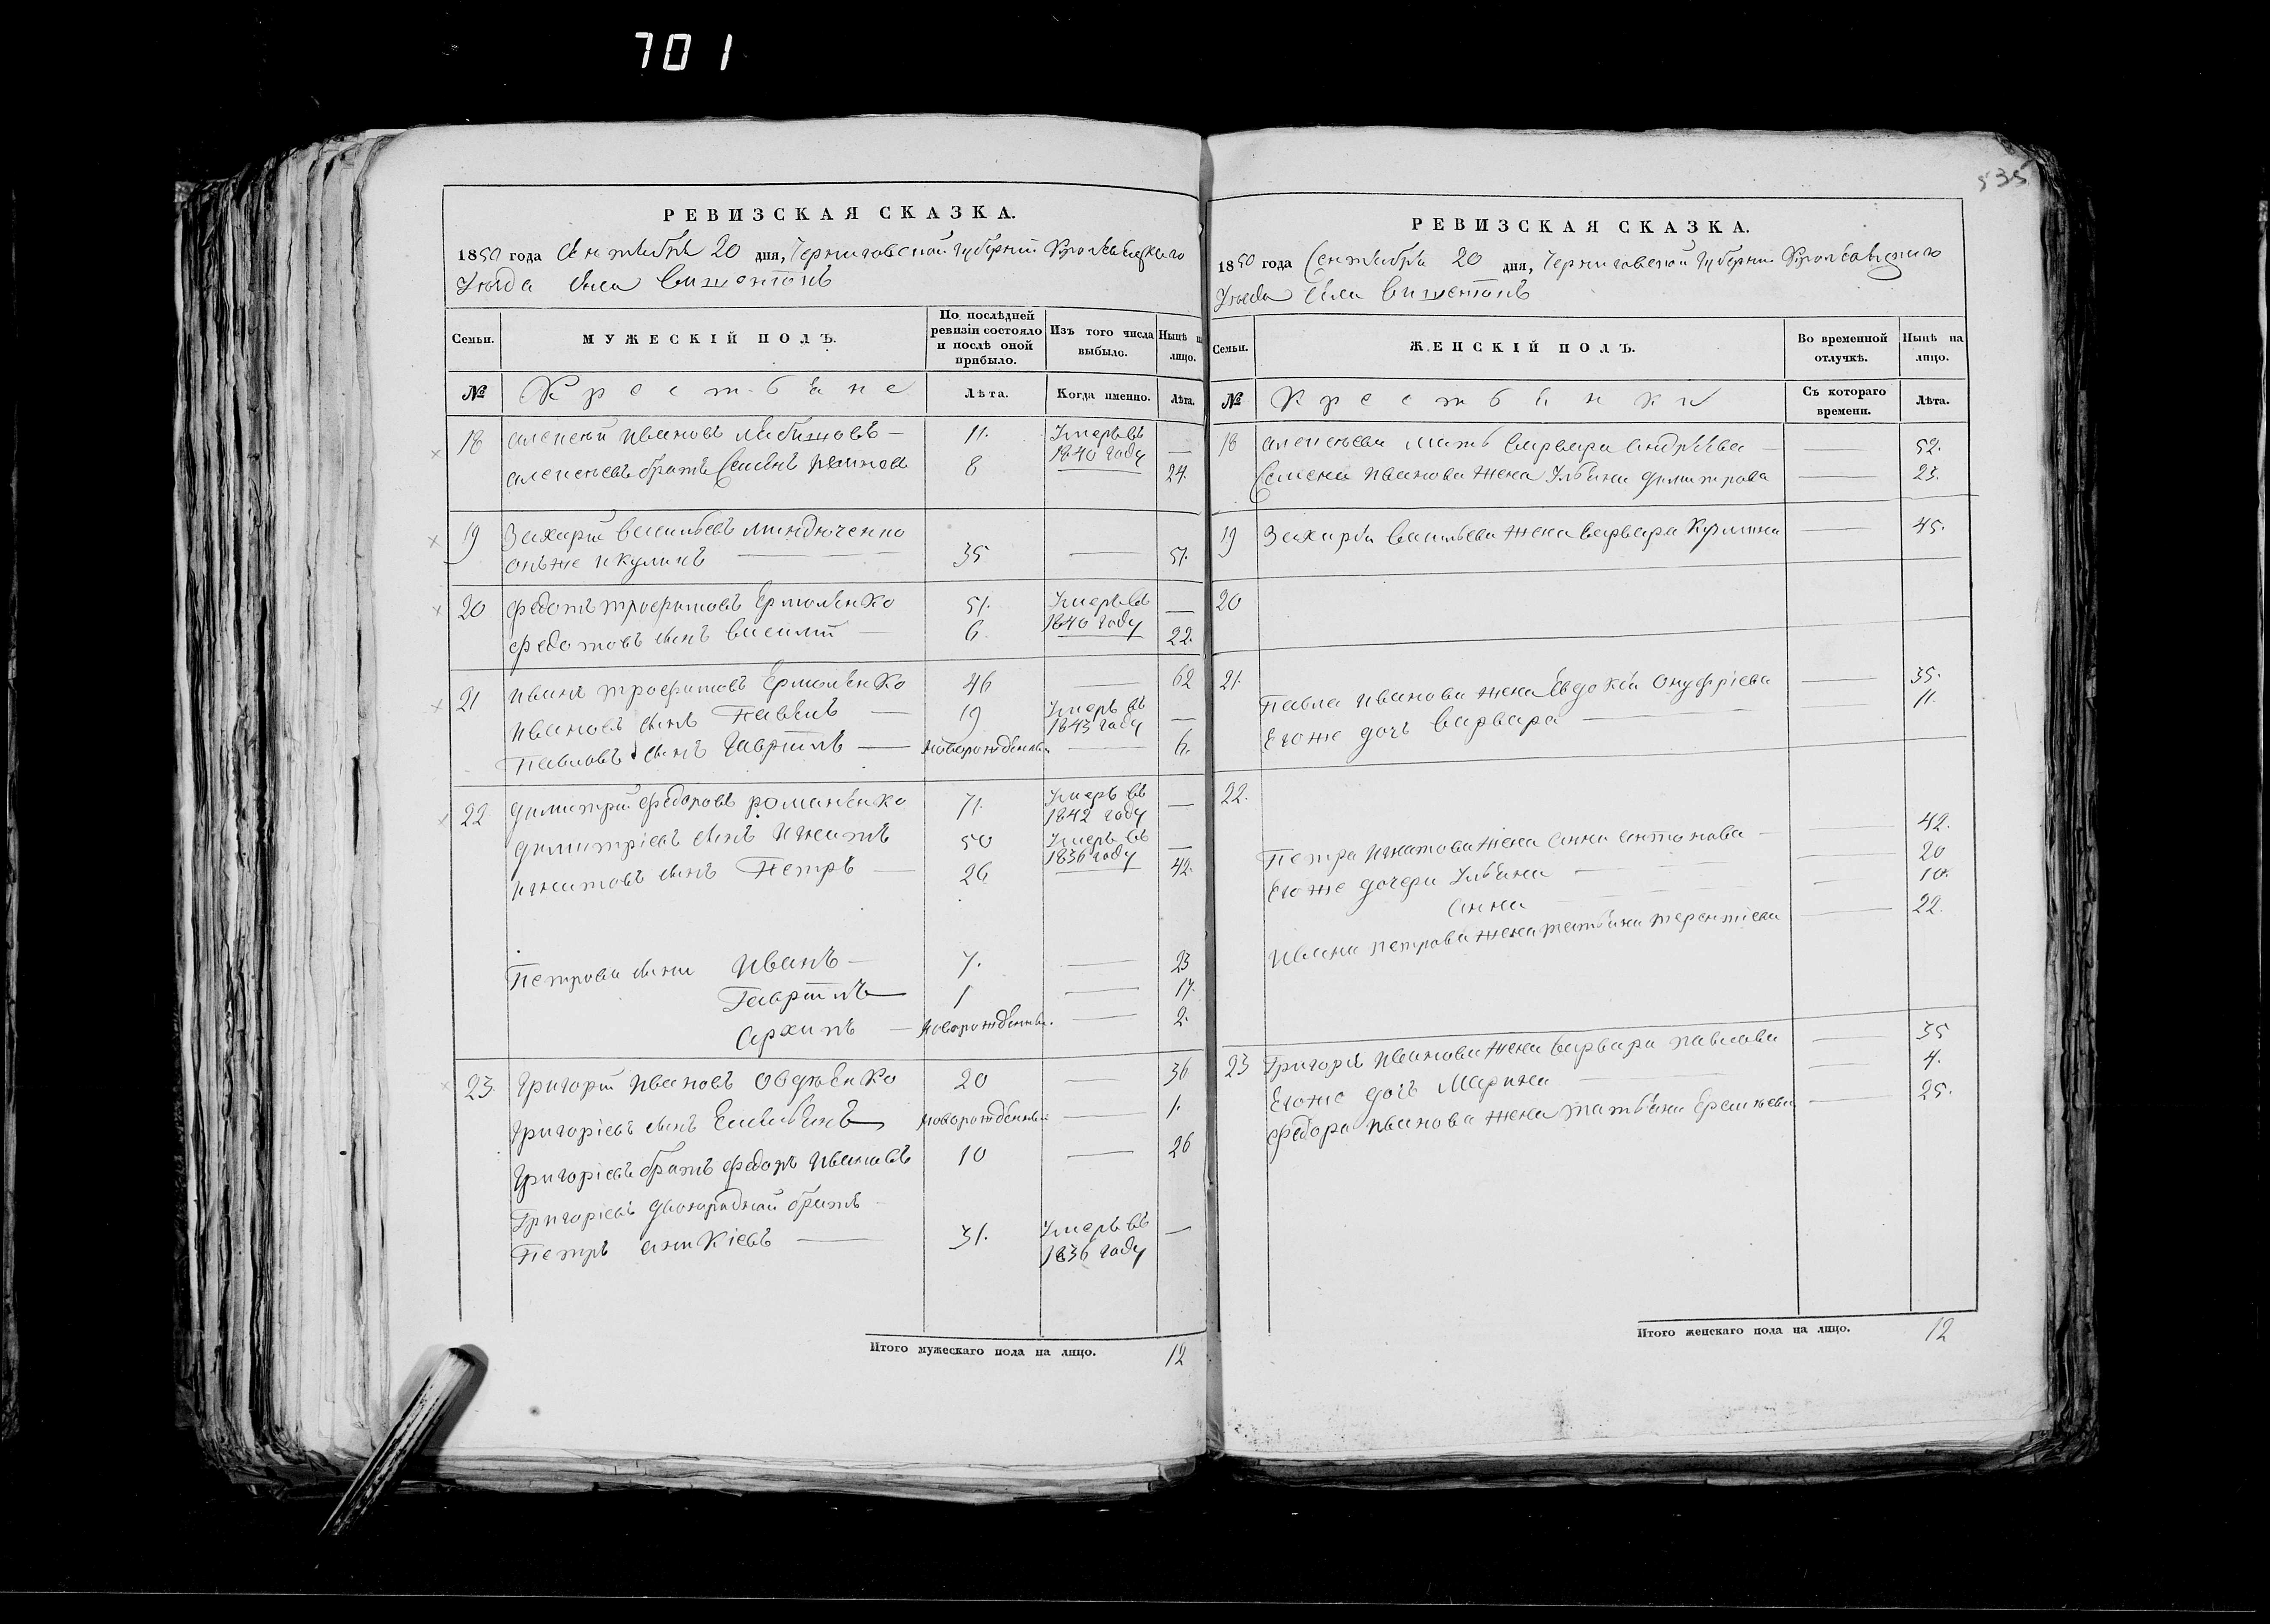 701
535
РЕВИЗСКАЯ СКАЗКА.
1850 года Сентября 20 дня, Черниговской Губернии Кролевецкаго
Уезда Села
МУЖЕСКІЙ ПОЛЪ.
Семьи.
По послѣдней ревизіи состояло и послѣ оной прибыло.
Изъ того числа выбыло.
Нынѣ на лицо.
№ Крестьяне Лѣта. Когда именно. Лѣта.
18 Алексей Ивановъ 11. Умеръ въ 1840 году —
Алексеевъ братъ Семенъ Ивановъ 8 — 24.
19 Захарій Васильевъ Миндюченко
онъ же Икулинъ — 35 — 51.
20 Федотъ Трофимовъ Ермоленко 51. Умеръ въ 1840 году —
Федотовъ сынъ Василій — 6. — 22.
21 Иванъ Трофимовъ Ермоленко 46 — 62
Ивановъ сынъ Павелъ — 19 Умеръ въ 1843 году —
Павловъ сынъ Гаврилъ — новорожденный — 6.
22 Димитрій Федоровъ Романенко 71. Умеръ въ 1842 году —
Димитріевъ сынъ Игнатъ 50 Умеръ въ 1836 году —
Игнатовъ сынъ Петръ — 26 — 42.
Петрови сыни Иванъ — 7. — 23
Гаврилъ — 1 — 17.
Архипъ — новорожденный. — 2.
23 Григорій Ивановъ Овдѣенко 20 — 36
Григоріевъ сынъ новорожденный — 1.
Григоріевъ братъ Федоръ Ивановъ 10 — 26
Григоріевъ двоюродный братъ
Петръ — 31. Умеръ въ 1836 году —
Итого мужескаго пола на лицо. 12
РЕВИЗСКАЯ СКАЗКА.
1850 года Сентября 20 дня, Черниговской Губернии Кролевецкаго
Уезда Села
Семьи.
ЖЕНСКІЙ ПОЛЪ.
Во временной отлучкѣ.
Нынѣ на лицо.
№ Крестьянки Съ котораго времени. Лѣта.
18 Алексеева мать Варвара Андрѣева — 52.
Семена Иванова жена Ульяна Димитрова — 23.
19 Захарія Васильева жена Варвара Кузмина — 45.
20
21. Павла Иванова жена Евдокія Онуфріева — 35.
Его же дочь Варвара — 11.
22. Петра Игнатова жена Анна Антонова — 42.
Его же дочери Ульяна — 20
Анна — 10.
Ивана Петрова жена Татьяна Терентіева — 22.
23 Григорія Иванова жена Варвара Павлова — 35
Его же дочь Марина — 4.
Федора Иванова жена Татьяна Еремѣева — 25.
Итого женскаго пола на лицо. 12